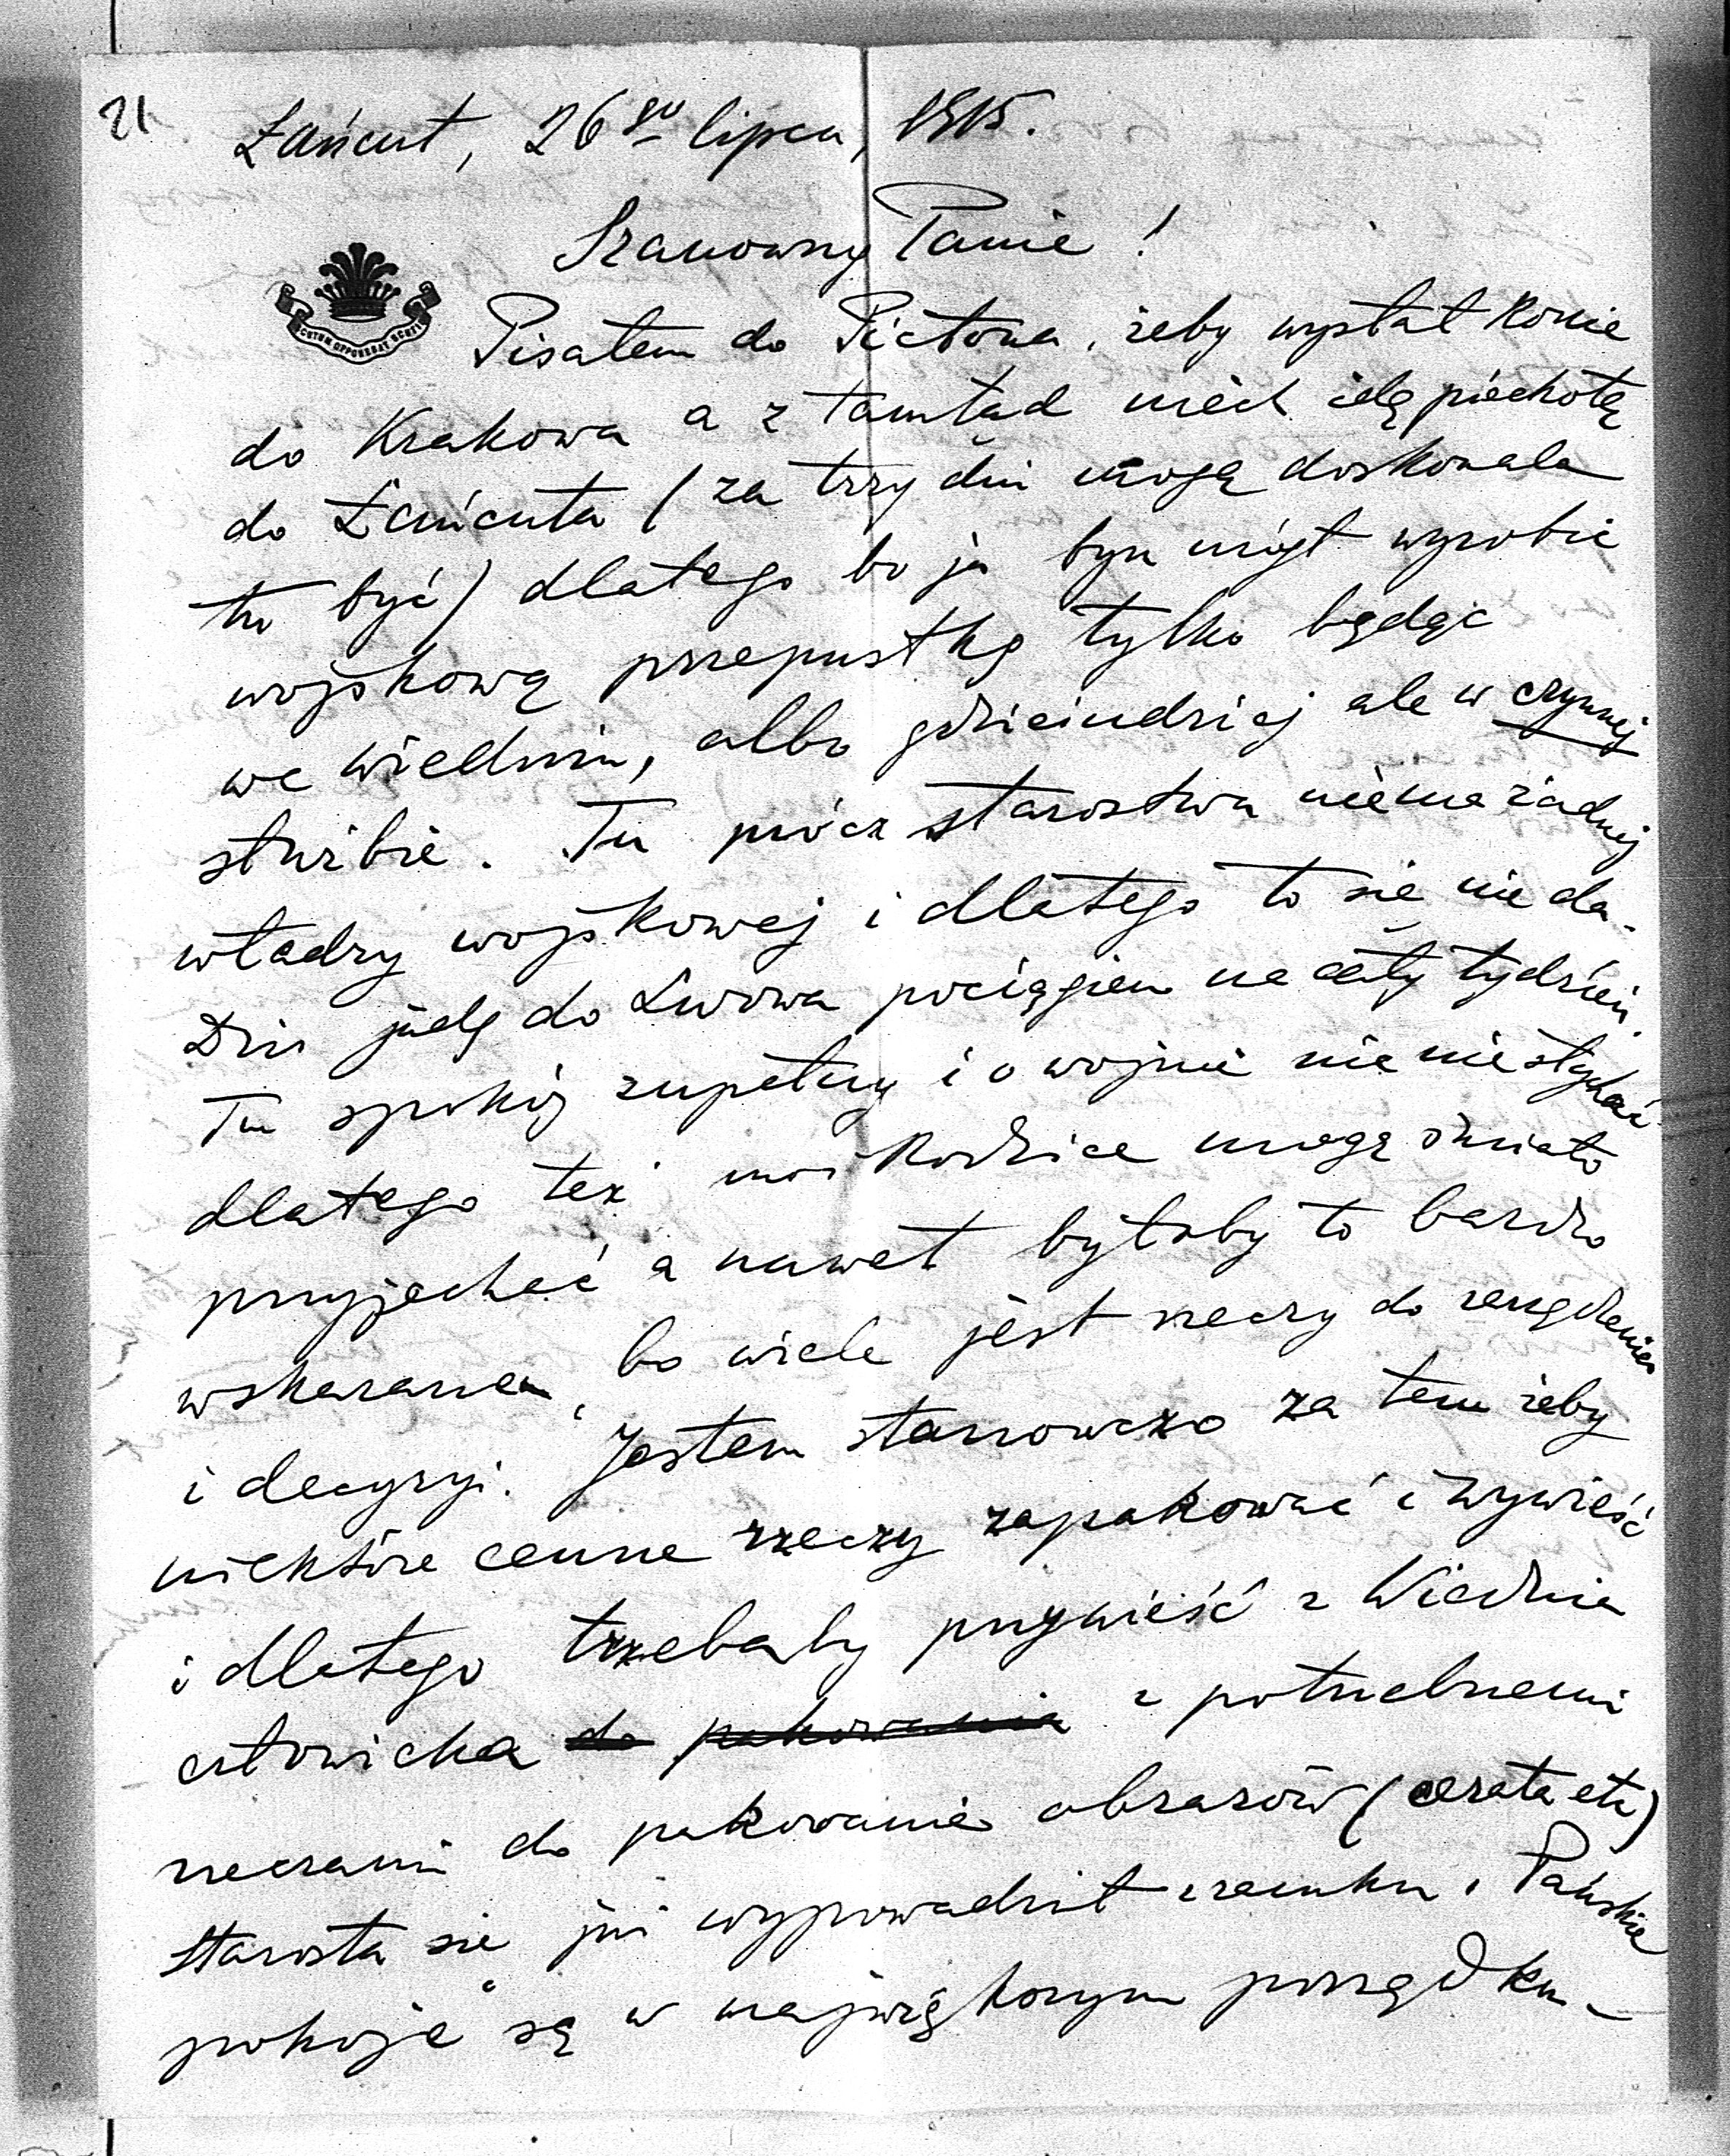 21
Łańcut, 26go lipca, 1915.
Szanowny Panie!
SCUTUM OPPONEBAT SCUTIS
Pisałem do Pictona, żeby wysłał Konie
do Krakowa a z tamtąd niech idą piechotą
do Łańcuta (za trzy dni mogą doskonala
tu być) dlatego bo ja bym mógł wyrobić
wojskową przepustkę tylko będąc
we Wiedniu, albo gdzieindziej ale w czynnej
służbie. Tu prócz starostwa niema żadnej
władzy wojskowej i dlatego to się nie da.
Dziś jadę do Lwowa pociągiem na cały tydzień.
Tu spokój zupełny i o wojnie nic nie słychać
dlatego też moi Rodzice mogą śmiało
przyjechać a nawet byłoby to bardzo
wskazanem, bo wiele jest rzeczy do zarządzenia
i decyzyi. Jestem stanowczo za tem żeby
niektóre cenne rzeczy zapakować i wywieść
i dlatego trzebaby przywieść z Wiednia
człowieka do pakowania z potrzebnemi
rzeczami do pakowania obrazów (cerata etc)
Starosta się już wyprowadził z zamku, Pańskie
pokoje są w największym porządku.